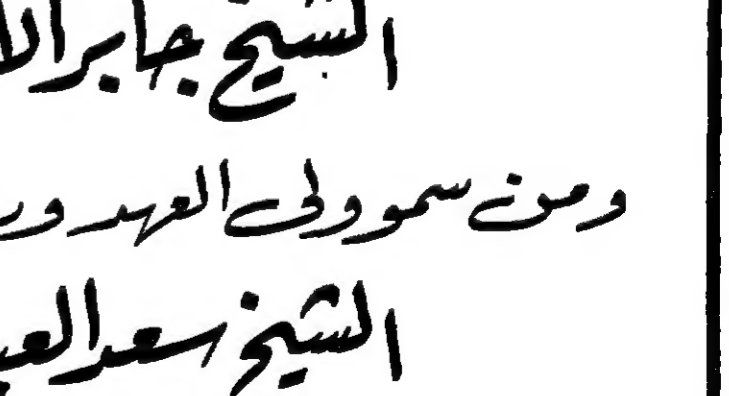 الشيخ جابر الا
ومن سمو ولي العهد ور
الشيخ سعد العب